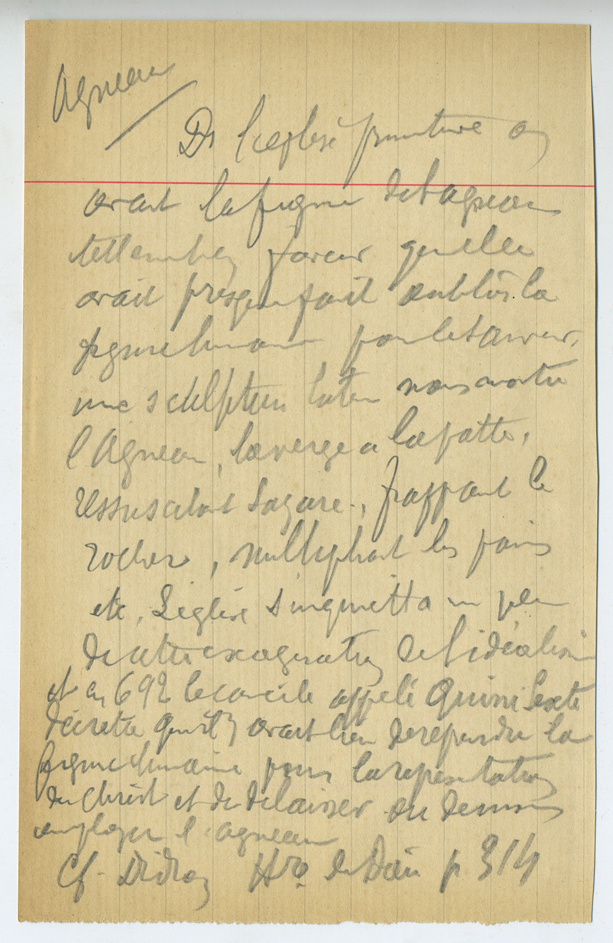 Agneau
Ds l'eglise primitive on
avait la figure de l'agneau
tellement en faveur qu'elle
avait presque fait oublier la
figure humaine pour le Sauveur,
une sculpture latine nous montre
l'Agneau, la verge a la patte,
ressuscitant Lazare, frappant le
rocher, multipliant les pains
etc. L'église s'inquietta un peu
de cette exageration de l'idéalisme
et en 692 le concile appelé Quini Sexte
décreta qu'il y avait lieu de reprendre la
figure humaine pour la representation
du Christ et de délaisser ou de moins
employer l'agneau
Cf. Didron Hre de Dieu p 314